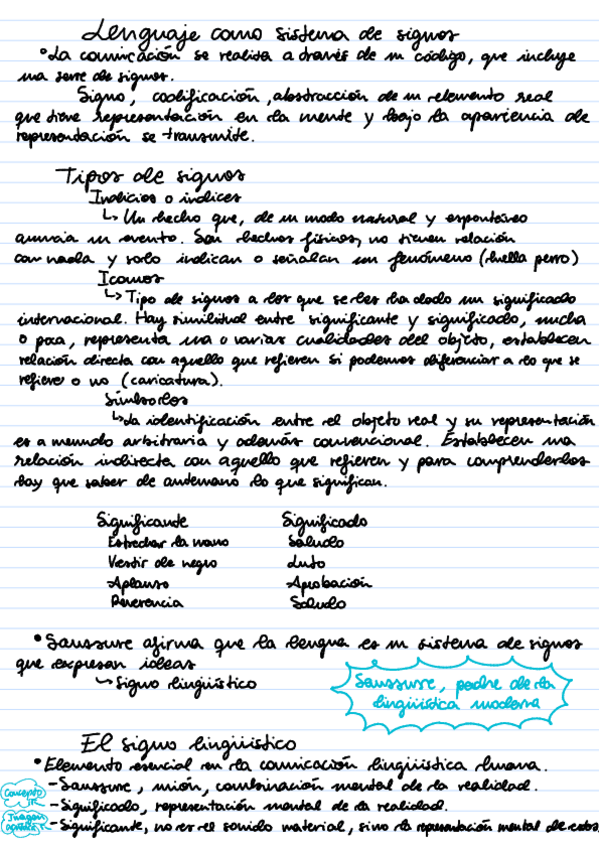 Lenguaje como sistema de signos
• La comunicación se realiza a través de un código, que incluye
una serie de signos.
Signo, codificación, abstracción de un elemento real
que tiene representación en la mente y bajo la apariencia de
representación se transmite.
Tipos de signos
Indicios o índices
↳ Un hecho que, de un modo natural y espontáneo
anuncia un evento. Son hechos físicos, no tienen relación
con nada y solo indican o señalan un fenómeno (huella perro)
Iconos
↳ Tipo de signos a los que se les ha dado un significado
internacional. Hay similitud entre significante y significado, mucha
o poca, representa una o varias cualidades del objeto, establecen
relación directa con aquello que refieren si podemos diferenciar a lo que se
refiere o no (caricatura).
Símbolos
↳ La identificación entre el objeto real y su representación
es a menudo arbitraria y además convencional. Establecen una
relación indirecta con aquello que refieren y para comprenderlos
hay que saber de antemano lo que significan.
Significante Significado
Estrechar la mano Saludo
Vestir de negro Luto
Aplauso Aprobación
Reverencia Saludo
• Saussure afirma que la lengua es un sistema de signos
que expresan ideas
↳ Signo lingüístico
Saussure, padre de la
lingüística moderna
El signo lingüístico
• Elemento esencial en la comunicación lingüística humana.
- Saussure, unión, combinación mental de la realidad.
Concepto
- Significado, representación mental de la realidad.
Imagen
- Significante, no es el sonido material, sino la representación mental de estos